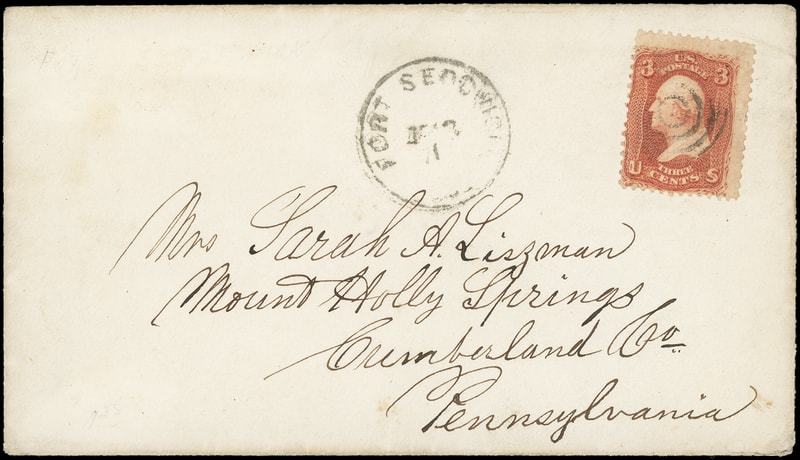 FORT SEDGWICK
3 U.S. 3
POSTAGE
THREE
U CENTS S
Mrs Sarah A. Liszman
Mount Holly Springs
Cumberland Co.
Pennsylvania